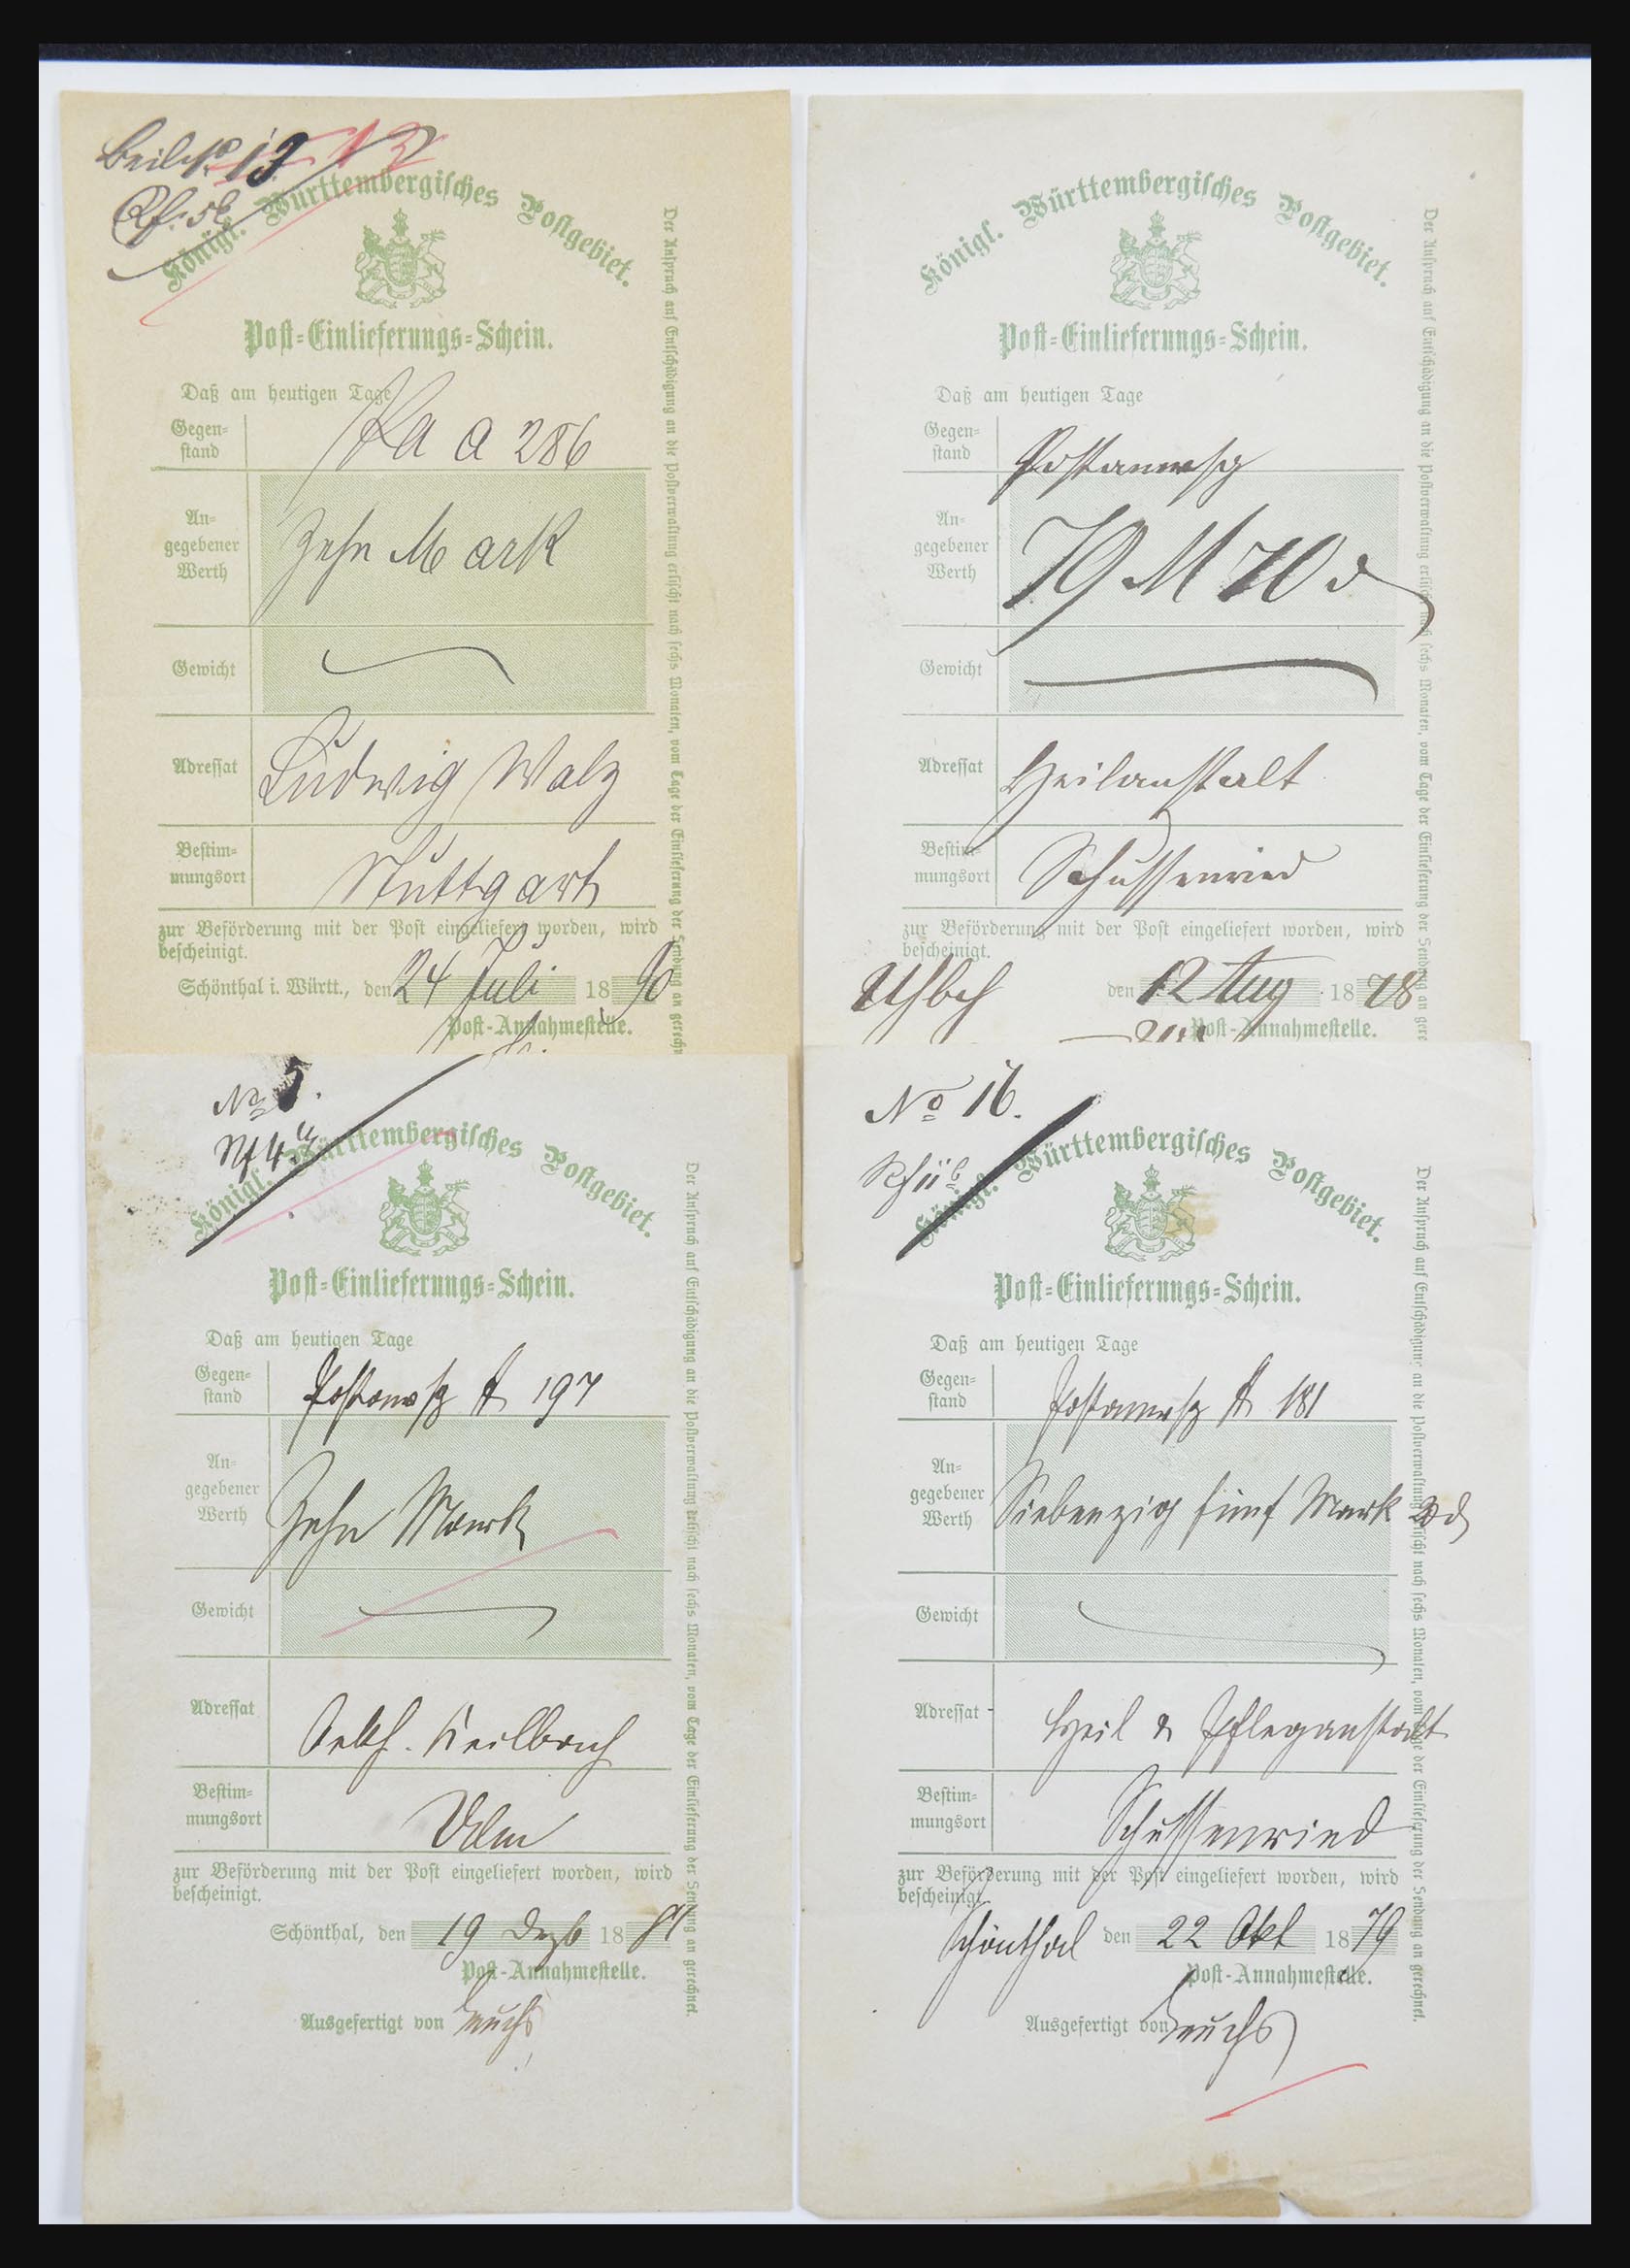 Beil N° 13 13
Königl. Württembergisches Postgebiet.
Post-Einlieferungs-Schein.
Daß am heutigen Tage
Gegen-
stand
Pa a 286
An-
gegebener
Werth
Zehn Mark
Gewicht
Adressat
Ludwig Walz
Bestim-
mungsort
Stuttgart
zur Beförderung mit der Post eingeliefert worden, wird
bescheinigt.
Schönthal i. Württ., den 24 Juli 1890
Post-Annahmestelle.
Der Anspruch auf Entschädigung an die Postverwaltung erlischt nach sechs Monaten, vom Tage der Einlieferung der Sendung an gerechn
Königl. Württembergisches Postgebiet.
Post-Einlieferungs-Schein.
Daß am heutigen Tage
Gegen-
stand
Postanwsg
An-
gegebener
Werth
79 M 70 d
Gewicht
Adressat
Heilanstalt
Bestim-
mungsort
Schussenried
zur Beförderung mit der Post eingeliefert worden, wird
bescheinigt.
den 12 Aug 1878
Post-Annahmestelle.
Der Anspruch auf Entschädigung an die Postverwaltung erlischt nach sechs Monaten, vom Tage der Einlieferung der Sendung an gere
No 5.
Königl. Württembergisches Postgebiet.
Post-Einlieferungs-Schein.
Daß am heutigen Tage
Gegen-
stand
Postanwsg A 197
An-
gegebener
Werth
Zehn Mark
Gewicht
Adressat
Keilbach
Bestim-
mungsort
Ulm
zur Beförderung mit der Post eingeliefert worden, wird
bescheinigt.
Schönthal, den 19 Dezb 18
Post-Annahmestelle.
Ausgefertigt von
Der Anspruch auf Entschädigung an die Postverwaltung erlischt nach sechs Monaten, vom Tage der Einlieferung der Sendung an gerechnet.
No 16.
Königl. Württembergisches Postgebiet.
Post-Einlieferungs-Schein.
Daß am heutigen Tage
Gegen-
stand
Postanwsg A 181
An-
gegebener
Werth
Siebenzig fünf Mark
Gewicht
Adressat
Heil & Pfleganstalt
Bestim-
mungsort
Schussenried
zur Beförderung mit der Post eingeliefert worden, wird
bescheinigt.
Schönthal den 22 Okt 1879
Post-Annahmestelle.
Ausgefertigt von
Der Anspruch auf Entschädigung an die Postverwaltung erlischt nach sechs Monaten, vom Tage der Einlieferung der Sendung an gerechnet.